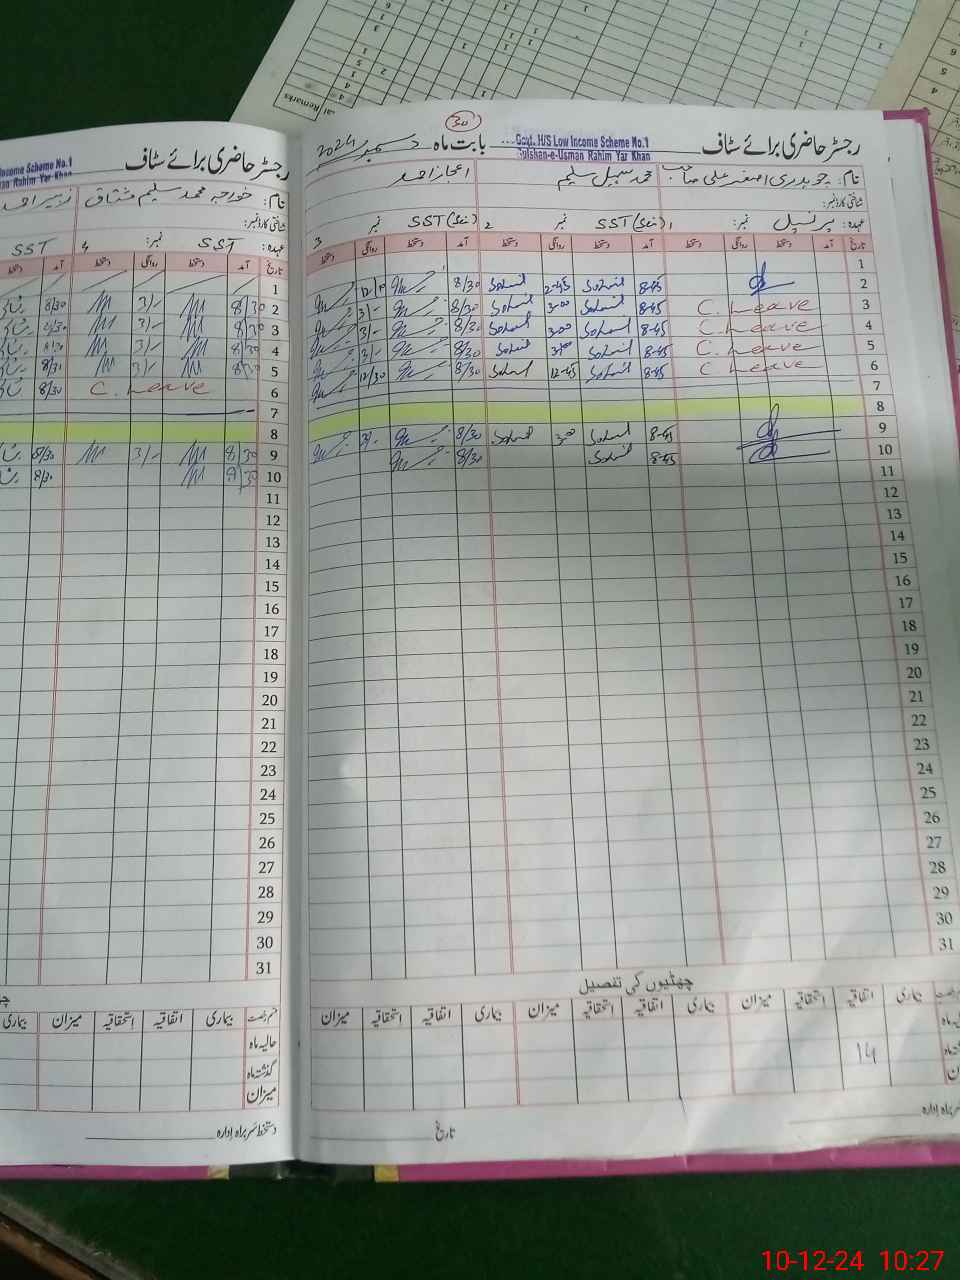 al Remarks
30
رجسٹر حاضری برائے سٹاف
Govt. H/S Low Income Scheme No.1
Gulshan-e-Usman Rahim Yar Khan
بابت ماہ دسمبر 2024
نام: چوہدری اصغر علی صاحب محمد سہیل سلیم اعجاز احمد
شناختی کارڈ نمبر:
عہدہ: پرنسپل نمبر: 1 SST نمبر 2 SST نمبر 3
تاریخ آمد دستخط روانگی دستخط آمد دستخط روانگی دستخط آمد دستخط روانگی دستخط
1
2 8-45 Sohail 2-45 Sohail 8/30
3 C. Leave 8-45 Sohail 3-00 Sohail 8/30 3/-
4 C. Leave 8-45 Sohail 3-00 Sohail 8/30 3/-
5 C. Leave 8-45 Sohail 3-00 Sohail 8/30 3/-
6 C. Leave 8-45 Sohail 12-45 Sohail 8/30 12/30
7
8
9 8-45 Sohail 3-00 Sohail 8/30 3/-
10 8-45 Sohail 8/30
11
12
13
14
15
16
17
18
19
20
21
22
23
24
25
26
27
28
29
30
31
چھٹیوں کی تفصیل
بیماری اتفاقیہ استحقاقیہ میزان بیماری اتفاقیہ استحقاقیہ میزان بیماری اتفاقیہ استحقاقیہ میزان
14
دستخط سربراہ ادارہ
تاریخ
رجسٹر حاضری برائے سٹاف
Income Scheme No.1
an Rahim Yar Khan
نام: خواجہ محمد سلیم مشتاق زبیر احمد
شناختی کارڈ نمبر:
عہدہ: SST نمبر: 4 SST
تاریخ آمد دستخط روانگی دستخط آمد دستخط
1
2 8/30 3/- 8/30
3 8/30 3/- 8/30
4 8/30 3/- 8/30
5 8/30 3/- 8/30
6 C. Leave 8/30
7
8
9 8/30 3/- 8/30
10 8/30 8/30
11
12
13
14
15
16
17
18
19
20
21
22
23
24
25
26
27
28
29
30
31
قسم رخصت بیماری اتفاقیہ استحقاقیہ میزان بیماری
حالیہ ماہ
گذشتہ ماہ
میزان
دستخط سربراہ ادارہ
10-12-24 10:27